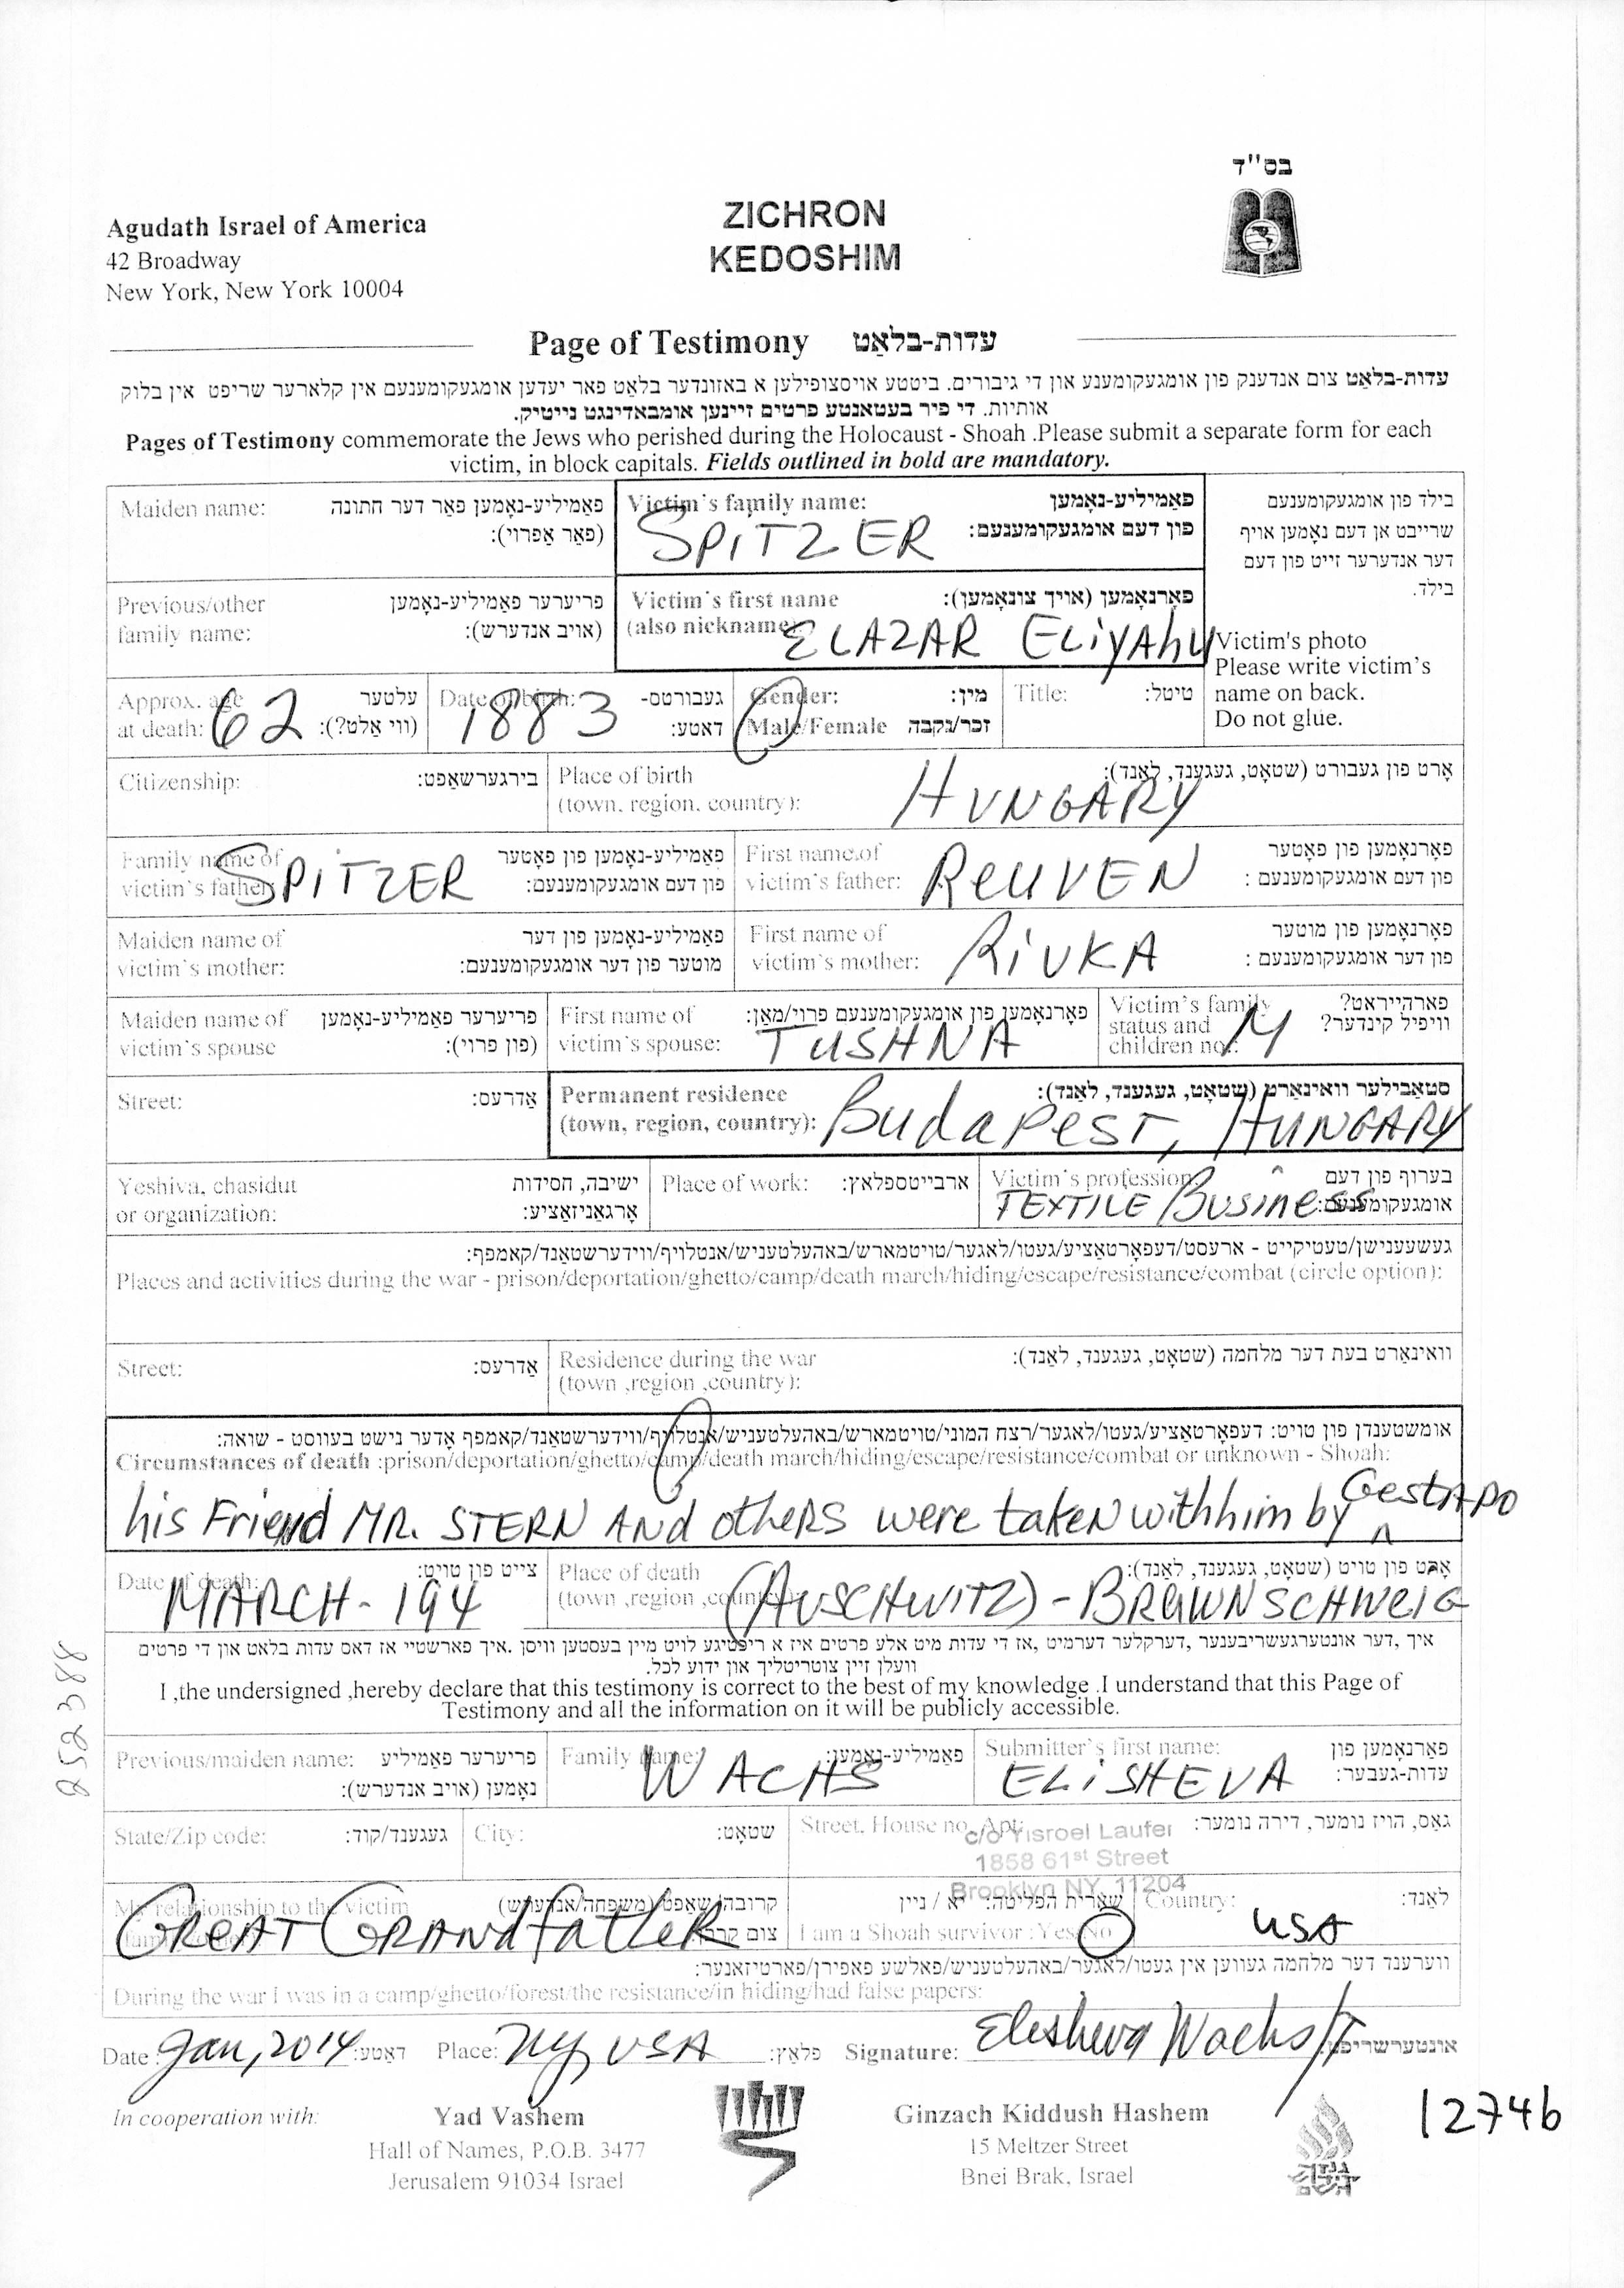 בס"ד
Agudath Israel of America
42 Broadway
New York, New York 10004
ZICHRON
KEDOSHIM
Page of Testimony עדות-בלאַט
עדות-בלאַט צום אנדענק פון אומגעקומענע און די גיבורים. ביטטע אויסצופילען א באזונדער בלאַט פאר יעדען אומגעקומענעם אין קלארער שריפט אין בלוק
אותיות. די פיר בעטאנטע פרטים זיינען אומבאדינגט נייטיק.
Pages of Testimony commemorate the Jews who perished during the Holocaust - Shoah .Please submit a separate form for each
victim, in block capitals. Fields outlined in bold are mandatory.
Maiden name: פאַמיליע-נאָמען פאַר דער חתונה
(פאַר אַפרוי):
Victim's family name: פאַמיליע-נאָמען
פון דעם אומגעקומענעם:
SPITZER
בילד פון אומגעקומענעם
שרייבט אן דעם נאָמען אויף
דער אנדערער זייט פון דעם
בילד.
Previous/other פריערער פאַמיליע-נאָמען
family name: (אויב אנדערש):
Victim's first name פאָרנאָמען (אויך צונאָמען):
(also nickname)
ELAZAR ELiYAhU
Victim's photo
Please write victim's
name on back.
Do not glue.
Approx. age עלטער
at death: 62 (ווי אַלט?):
Date of birth: געבורטס-
1883 דאַטע:
Gender: מין:
Male/Female זכר/נקבה
Title: טיטל:
Citizenship: בירגערשאַפט:
Place of birth אָרט פון געבורט (שטאָט, געגענד, לאַנד):
(town, region, country):
HUNGARY
Family name of פאַמיליע-נאָמען פון פאָטער
victim's father: פון דעם אומגעקומענעם:
SPITZER
First name of פאָרנאָמען פון פאָטער
victim's father: פון דעם אומגעקומענעם :
REUVEN
Maiden name of פאַמיליע-נאָמען פון דער
victim's mother: מוטער פון דער אומגעקומענעם:
First name of פאָרנאָמען פון מוטער
victim's mother: פון דער אומגעקומענעם :
RiVKA
Maiden name of פריערער פאַמיליע-נאָמען
victim's spouse (פון פרוי):
First name of פאָרנאָמען פון אומגעקומענעם פרוי/מאַן:
victim's spouse: TUSHNA
Victim's family פארהייראט?
status and וויפיל קינדער?
children no.: M
Street: אַדרעס:
Permanent residence סטאַבילער וואוינאָרט (שטאָט, געגענד, לאַנד):
(town, region, country): Budapest, HUNGARY
Yeshiva, chasidut ישיבה, חסידות
or organization: אָרגאַניזאַציע:
Place of work: ארבייטספלאץ:
Victim's profession בערוף פון דעם
אומגעקומענעם:
TEXTILE BUSiness
געשעענישן/טעטיקייט - ארעסט/דעפּאָרטאַציע/געטו/לאגער/טויטמארש/באהעלטעניש/אנטלויף/ווידערשטאַנד/קאמפף:
Places and activities during the war - prison/deportation/ghetto/camp/death march/hiding/escape/resistance/combat (circle option):
Street: אַדרעס:
Residence during the war וואוינאָרט בעת דער מלחמה (שטאָט, געגענד, לאַנד):
(town ,region ,country):
אומשטענדן פון טויט: דעפּאָרטאַציע/געטו/לאגער/רצח המוני/טויטמארש/באהעלטעניש/אנטלויף/ווידערשטאַנד/קאמפף אָדער נישט בעוואוסט - שואה:
Circumstances of death :prison/deportation/ghetto/camp/death march/hiding/escape/resistance/combat or unknown - Shoah:
his Friend MR. STERN ANd otheRS were taken with him by GestAPO
Date of death: צייט פון טויט:
MARCH - 194
Place of death אָרט פון טויט (שטאָט, געגענד, לאַנד):
(town ,region ,country)
(AUSCHWITZ) - BRAWNSCHWEIG
איך ,דער אונטערגעשריבענער ,דערקלער דערמיט ,אז די עדות מיט אלע פרטים איז א ריכטיגע לויט מיין בעסטען וויסן .איך פארשטיי אז דאס עדות בלאט און די פרטים
וועלן זיין צוטריטליך און ידוע לכל.
I ,the undersigned ,hereby declare that this testimony is correct to the best of my knowledge .I understand that this Page of
Testimony and all the information on it will be publicly accessible.
252388
Previous/maiden name: פריערער פאַמיליע
נאָמען (אויב אנדערש):
Family name: פאַמיליע-נאָמען:
WACHS
Submitter's first name: פאָרנאָמען פון
עדות-געבער:
ELiSHEVA
State/Zip code: געגענד/קוד:
City: שטאָט:
Street, House no, Apt: גאַס, הויז נומער, דירה נומער:
c/o Yisroel Laufer
1858 61st Street
Brooklyn NY, 11204
My relationship to the victim קרובה'שאַפט (משפּחה/אנדערש)
GREAT GRANdfatheR
שארית הפליטה: יא / ניין
I am a Shoah survivor : Yes/No
Country: לאַנד:
USA
ווערענד דער מלחמה געווען אין געטו/לאַגער/באהעלטעניש/פאלשע פאפירן/פארטיזאנער:
During the war I was in a camp/ghetto/forest/the resistance/in hiding/had false papers:
Date: Jan, 2014 דאַטע: Place: NY, USA פלאַץ: Signature: Elisheva Wachs/T אונטערשריפט:
In cooperation with:
Yad Vashem
Hall of Names, P.O.B. 3477
Jerusalem 91034 Israel
Ginzach Kiddush Hashem
15 Meltzer Street
Bnei Brak, Israel
12746